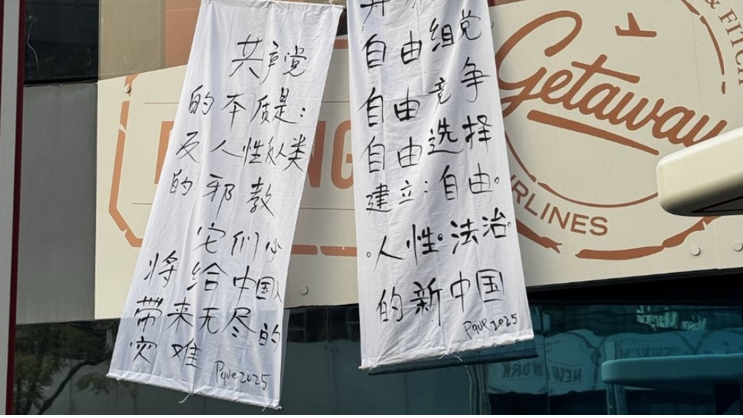 共产党
的本质是:
反人性反人类
的邪教
它们必
将给中国人
带来无尽的
灾难
Pque 2025
自由组党
自由竞争
自由选择
建立:自由。
。人性。法治。
的新中国
Pque 2025
Getaway
IRLINES
& FITCH
NG